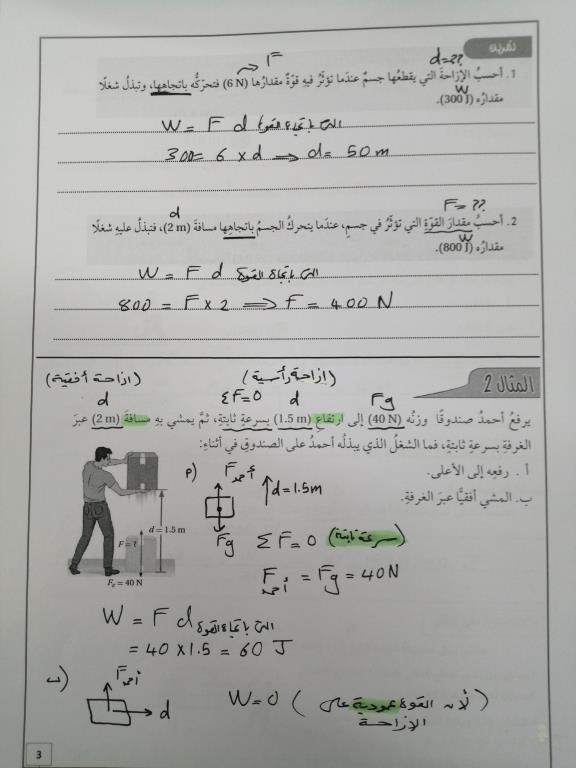 تمرين
F
d=??
1. أحسبُ الإزاحةَ التي يقطعُها جسمٌ عندَما تؤثّرُ فيهِ قوّةٌ مقدارُها (6 N) فتحرّكُه باتجاهِها، وتبذلُ شغلًا
W
مقدارُه (300 J).
W = F d التي باتجاه القوة
300 = 6 × d ⟹ d = 50 m
F=??
d
2. أحسبُ مقدارَ القوّةِ التي تؤثّرُ في جسمٍ، عندَما يتحركُ الجسمُ باتجاهِها مسافةَ (2 m)، فتبذلُ عليهِ شغلًا
W
مقدارُه (800 J).
W = F d التي باتجاه القوة
800 = F × 2 ⟹ F = 400 N
المثال 2
(إزاحة رأسية)
(إزاحة أفقية)
Fg d ΣF=0 d
يرفعُ أحمدُ صندوقًا وزنُه (40 N) إلى ارتفاعِ (1.5 m) بسرعةٍ ثابتةٍ، ثمَّ يمشي بهِ مسافةَ (2 m) عبرَ
الغرفةِ بسرعةٍ ثابتةٍ، فما الشغلُ الذي يبذلُه أحمدُ على الصندوقِ في أثناءِ:
أ . رفعِه إلى الأعلى.
ب. المشيِ أفقيًّا عبرَ الغرفةِ.
أ) F أحمد
d = 1.5 m
Fg
ΣF = 0 (سرعة ثابتة)
F أحمد = Fg = 40 N
d = 1.5 m
F = ?
Fg = 40 N
W = F d التي باتجاه القوة
= 40 × 1.5 = 60 J
ب) F أحمد
d
W = 0 (لأن القوة عمودية على
الإزاحة)
3